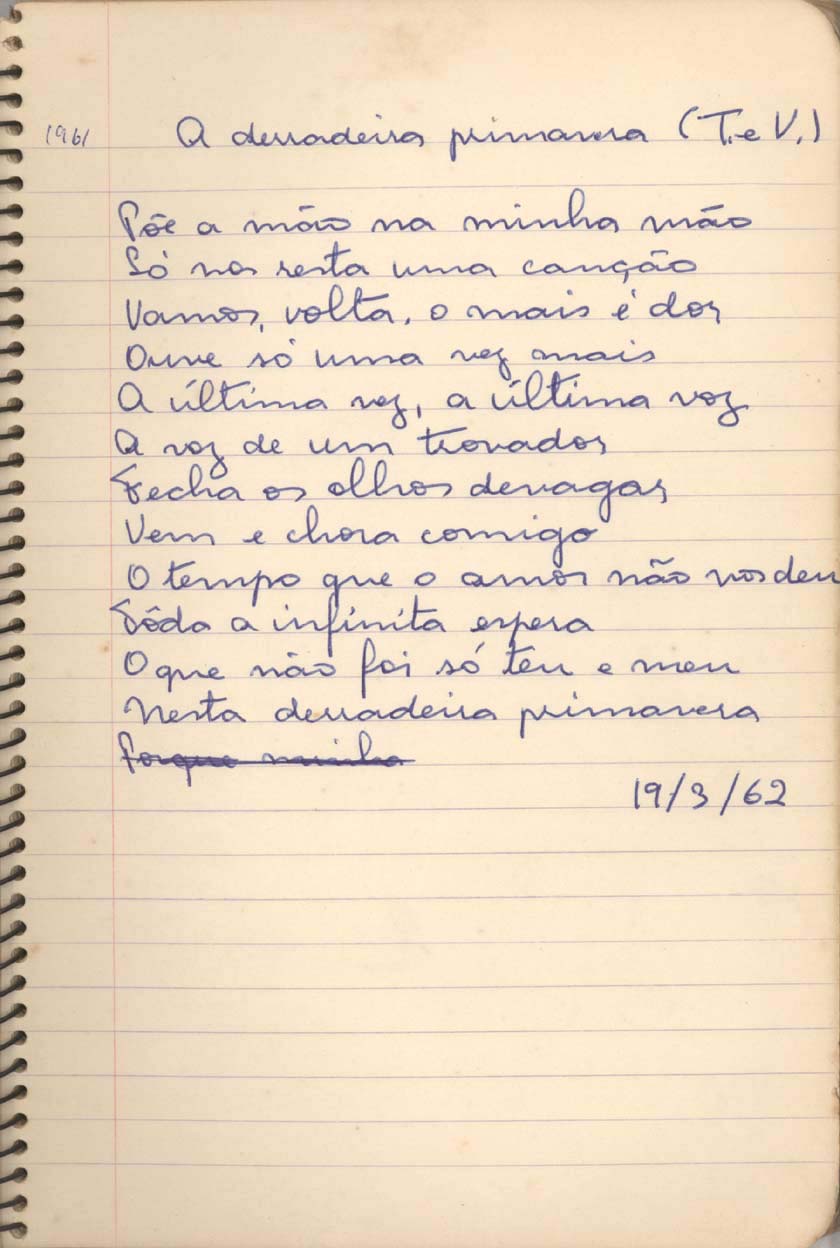 1961 A derradeira primavera (T. e V.)
Põe a mão na minha mão
Só nos resta uma canção
Vamos, volta, o mais é dor
Ouve só uma vez mais
A última vez, a última voz
A voz de um trovador
Fecha os olhos devagar
Vem e chora comigo
O tempo que o amor não nos deu
Tôda a infinita espera
O que não foi só teu e meu
Nesta derradeira primavera
Porque minha
19/3/62